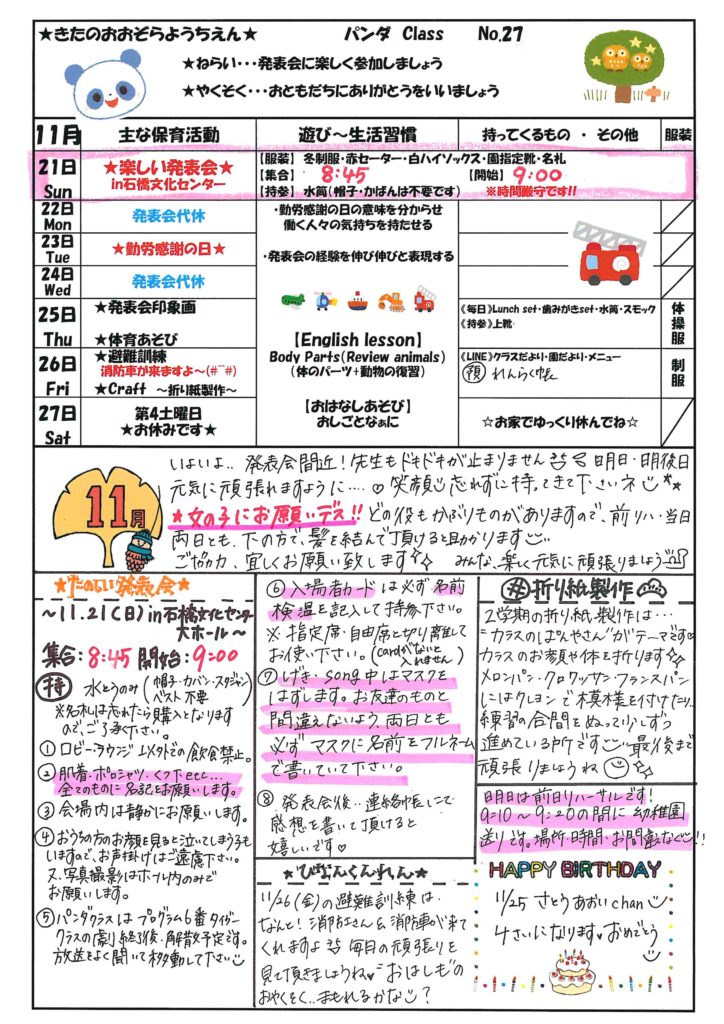 ★きたのおおぞらようちえん★　パンダ Class　No.27
★ねらい・・・発表会に楽しく参加しましょう
★やくそく・・・おともだちにありがとうをいいましょう
11月　主な保育活動　遊び～生活習慣　持ってくるもの ・ その他　服装
21日 Sun
★楽しい発表会★
in石橋文化センター
【服装】 冬制服・赤セーター・白ハイソックス・園指定靴・名札
【集合】 8:45　【開始】 9:00
【持参】 水筒(帽子・かばんは不要です)　※時間厳守です!!
22日 Mon
発表会代休
・勤労感謝の日の意味を分からせ
働く人々の気持ちを持たせる
23日 Tue
★勤労感謝の日★
・発表会の経験を伸び伸びと表現する
24日 Wed
発表会代休
25日 Thu
★発表会印象画
★体育あそび
【English lesson】
Body Parts(Review animals)
(体のパーツ+動物の復習)
《毎日》Lunch set・歯みがきset・水筒・スモック
《持参》上靴
体操服
26日 Fri
★避難訓練
消防車が来ますよ～(#^^#)
★Craft ～折り紙製作～
《LINE》クラスだより・園だより・メニュー
預 れんらく帳
制服
【おはなしあそび】
おしごとなぁに
27日 Sat
第4土曜日
★お休みです★
☆お家でゆっくり休んでね☆
11月
いよいよ.. 発表会間近！先生もドキドキが止まりません 明日・明後日
元気に頑張れますように....♡ 笑顔 忘れずに持ってきて下さいネ
★女の子にお願いデス!! どの役もかぶりものがありますので、前リハ・当日
両日とも、下の方で、髪を結んで頂けると助かります
ご協力、宜しくお願い致します みんな、楽しく元気に頑張りましょう
★たのしい発表会★
～11.21(日)in石橋文化センター
大ホール～
集合：8:45 開始：9:00
持 水とうのみ (帽子・カバン・スタジャン
ベスト 不要)
※名札は忘れたら購入となります
ので、ご了承下さい。
① ロビー・ラウンジ以外での飲食禁止。
② 肌着・ポロシャツ・くつ下etc...
全てのものに名記をお願いします。
③ 会場内は静かにお願いします。
④ おうちの方のお顔を見ると泣いてしまう子も
いますので、お声掛けはご遠慮下さい。
又、写真撮影はホール内のみで
お願いします。
⑤ パンダクラスは プログラム6番タイガー
クラスの劇終了後、解散予定です。
放送をよく聞いて移動して下さい
⑥ 入場者カードは必ず名前
検温を記入して持参下さい。
※ 指定席・自由席と切り離して
お使い下さい。(cardがないと
入れません)
⑦ げき・song中はマスクを
はずします。お友達のものと
間違えないよう、両日とも
必ず マスクに名前をフルネーム
で書いていて下さい。
⑧ 発表会後、連絡帳にて
感想を書いて頂けると
嬉しいです♡
★ひなんくんれん★
11/26(金)の避難訓練は
なんと！消防士さん&消防車が来て
くれますよ 毎日の頑張りを
見て頂きましょうね♡"おはしも"の
おやくそく..まもれるかな？
#折り紙製作
2学期の折り紙製作は…
"カラスのぱんやさん"がテーマです♡
カラスのお顔や体を折ります
メロンパン・クロワッサン・フランスパン
にはクレヨンで模様を付けたり..
練習の合間をぬって少しずつ
進めている所です 最後まで
頑張りましょうね
明日は前日リハーサルです！
9:10～9:20の間に幼稚園
送りです。場所・時間・お間違えなく!!
HAPPY BIRTHDAY
11/25 さとう あおい chan
4さいになります♡おめでとう